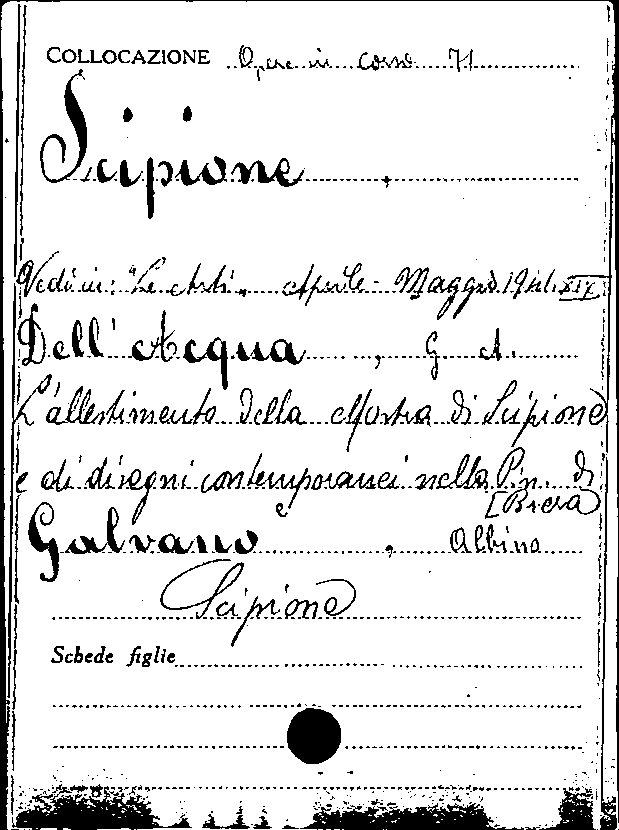 COLLOCAZIONE Opere in corso 71
Scipione ,
Vedi in: "Le Arti" Aprile - Maggio 1941. XIX
Dell' Acqua , G A.
L'allestimento della Mostra di Scipione
e di disegni contemporanei nella Pin. di
[Brera
e
Galvano , Albino
Scipione
Schede figlie